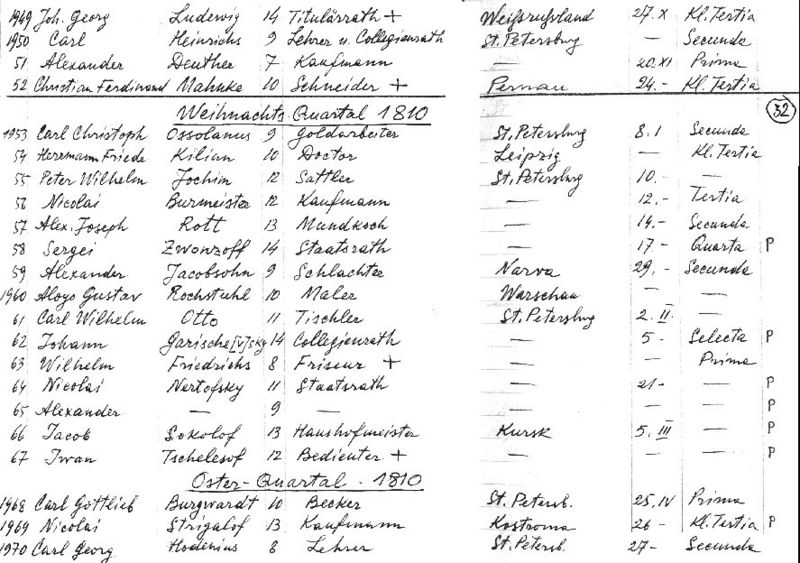 1949 Joh. Georg Ludewig 14 Titulärrath + Weißrussland 27.X Kl. Tertia
1950 Carl Heinrichs 9 Lehrer u. Collegienrath St. Petersburg — Secunda
51 Alexander Deuther 7 Kaufmann — 20.XI Prima
52 Christian Ferdinand Mahnke 10 Schneider + Pernau 24.- Kl. Tertia
Weihnachts-Quartal 1810
32
1953 Carl Christoph Ossolanus 9 Goldarbeiter St. Petersburg 8.1 Secunda
54 Herrmann Friede Kilian 10 Doctor Leipzig — Kl. Tertia
55 Peter Wilhelm Jochim 12 Sattler St. Petersburg 10.- —
56 Nicolai Burmeister 12 Kaufmann — 12.- Tertia
57 Alex. Joseph Rott 13 Mundkoch — 14.- Secunda
58 Sergei Zwonzoff 14 Staatsrath — 17- Quarta P
59 Alexander Jacobsohn 9 Schlachter Narva 29.- Secunda
1960 Aloys Gustav Rochstuhl 10 Maler Warschau — —
61 Carl Wilhelm Otto 11 Tischler St. Petersburg 2.II. —
62 Johann Garische[v]sky 14 Collegienrath — 5- Selecta P
63 Wilhelm Friedrichs 8 Friseur + — — Prima
64 Nicolai Nartofsky 11 Staatsrath — 21- — P
65 Alexander — 9 — — — — P
66 Jacob Sokolof 13 Haushofmeister Kursk 5.III — P
67 Iwan Tschelesof 12 Bedienter + — — — P
Oster-Quartal - 1810
1968 Carl Gottlieb Burgwardt 10 Becker St. Petersb. 25.IV Prima
1969 Nicolai Strigalof 13 Kaufmann Kostroma 26- Kl. Tertia P
1970 Carl Georg Hodenius 8 Lehrer St. Petersb. 27- Secunda